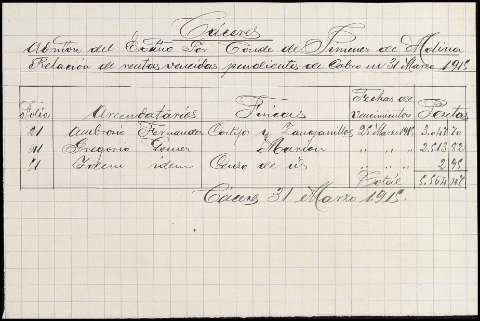 Cáceres
Admon del Excmo Sor Conde de Jimenez de Molina
Relación de rentas vencidas pendientes de Cobro en 31 Marzo 1915
Folio Arrendatarios Fincas Fechas de vencimientos Pesetas
21 Ambrosio Fernandez Cortijo y Zangarillas 25 Marzo 1915
Gregorio Gomez 2.513 52
21 Idem idem Censo de id " " " 2 95
Total 5.564
Cáceres 31 Marzo 1915.